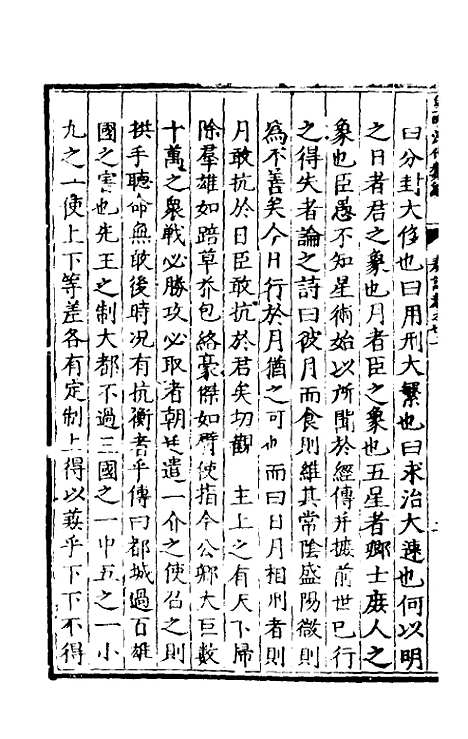 曰分封大侈也曰用刑大繁也曰求治大速也何以明
之日者君之象也月者臣之象也五星者卿士庶人之
象也臣愚不知星術始以所聞於經傳并摭前世已行
之得失者論之詩曰彼月而食則維其常陰盛陽微則
為不善矣今日行於月猶之可也而曰日月相刑者則
月敢抗於日臣敢抗於君矣切觀　主上之有天下掃
除羣雄如踣草芥包絡豪傑如臂使指令公卿大臣數
十萬之衆戰必勝攻必取者朝廷遣一介之使召之則
拱手聽命無敢後時况有抗衡者乎傳曰都城過百雉
國之害也先王之制大都不過三國之一中五之一小
九之一使上下等差各有定制上得以兼乎下下不得